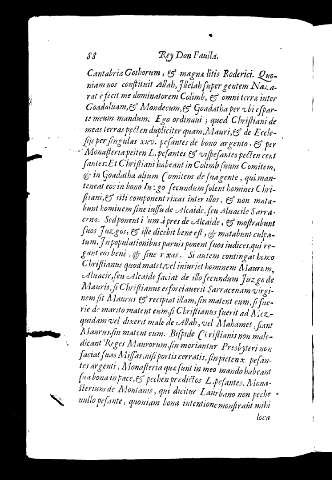 88 Rey Don Fauila.
Cantabria Gothorum, & magna litis Roderici. Quo-
niam nos constituit Allah, Ihelah super gentem Naza-
rat & fecit me dominatorem Colimb, & omni terra inter
Goadaluam, & Mondecum, & Goadatha per vbi espar-
te meum mandum. Ego ordinaui; quod Christiani de
meas terras pecten dupliciter quam Mauri, & de Eccle-
sijs per singulas xxv. pesantes de bono argento, & per
Monasteria peiten L. pesantes & vispesantes pecten cent
santes. Et Christiani habeant in Colimb suum Comitem,
& in Goadatha alium Comitem de sua gente, qui man-
teneat eos in bono Iuzgo secundum solent homines Chri-
stiani, & isti component rixas inter illos, & non mata-
bunt hominem sine iussu de Alcaide, seu Aluacile Sarra-
ceno. Sed ponent illum á pres de Alcaide, & mostrabunt
suos Iuzgos, & ille dicebit bene est, & matabunt culpa-
tum, In populationibus paruis ponent suos iudices, qui re-
gant eos bene, & sine rixas. Si autem contingat homo
Christianus quod matet, vel iniuriet hominem Maurum,
Aluacir, seu Alcaide faciat de illo secundum Iuzgo de
Mauris, si Christianus esforciauerit Sarracenam virgi-
nem sit Maurus & recipiat illam, sin matent eum, si fue-
rit de marito matent eum. si Christianus fuerit ad Mez-
quidam vel dixerit male de Allah, vel Mahamet, fiant
Maurus, sin matent eum. Bispi de Christianis non male-
dicant Reges Maurorum, sin moriantur Presbyteri non
faciat suas Missas, nisi portis cerratis, sin peiten x pesan-
tes argenti, Monasteria quæ sunt in meo mando habeant
sua bona in pace, & pechen prædictos L. pesantes. Mona-
sterium de Montanis, qui dicitur Laurbano non peche
nullo pesante, quoniam bona intentione monstrant mihi
loca